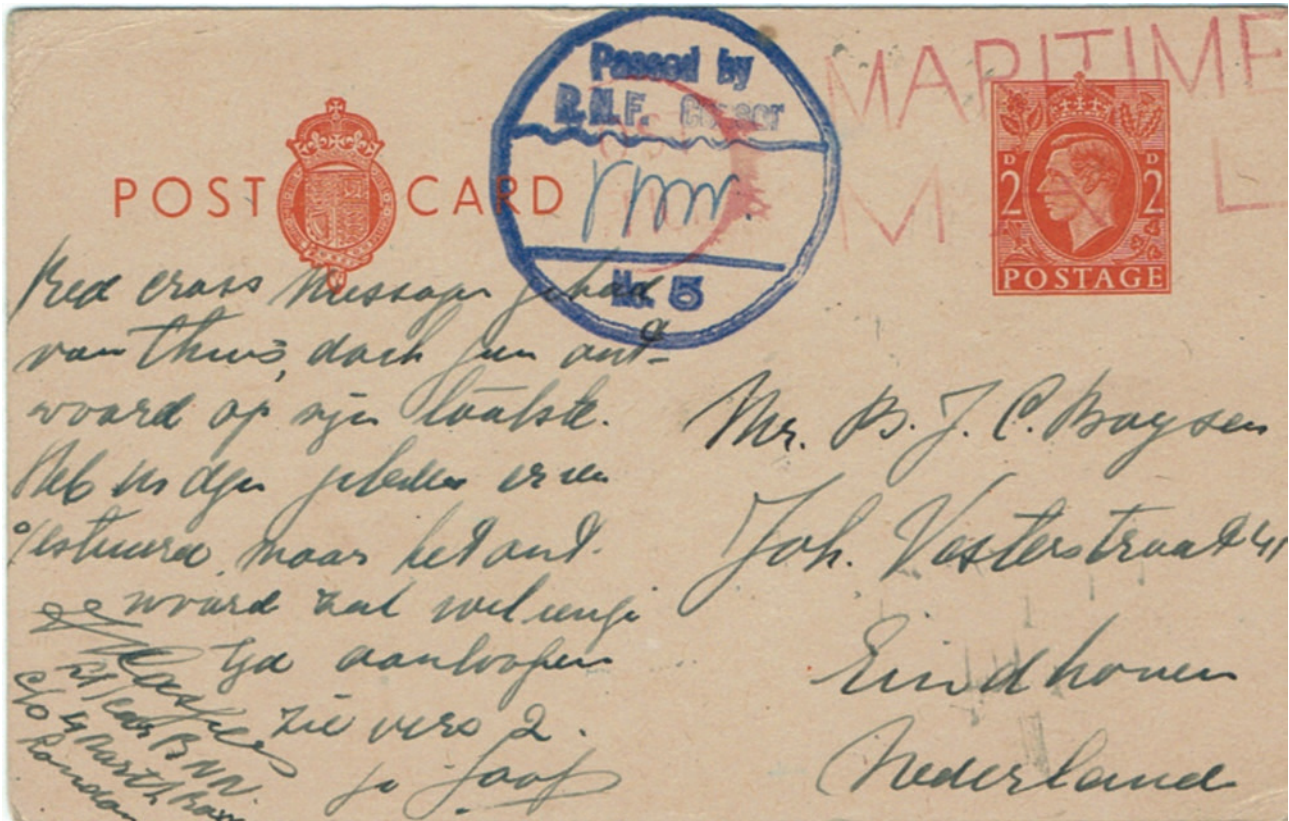 MARITIME
MAIL
POST CARD
Passed by
R.N.F. Censor
No. 5
2D 2D
POSTAGE
Red cross message gehad
van Thuis, doch geen ant-
woord op mijn laatste.
Heb dgn geleden er een
gestuurd, maar het ant-
woord zal wel enige
tijd aanloopen
zie vers 2.
je Jaap
c/o
London
Mr. B. J. C. Boysen
Joh. Vesterstraat 41
Eindhoven
Nederland